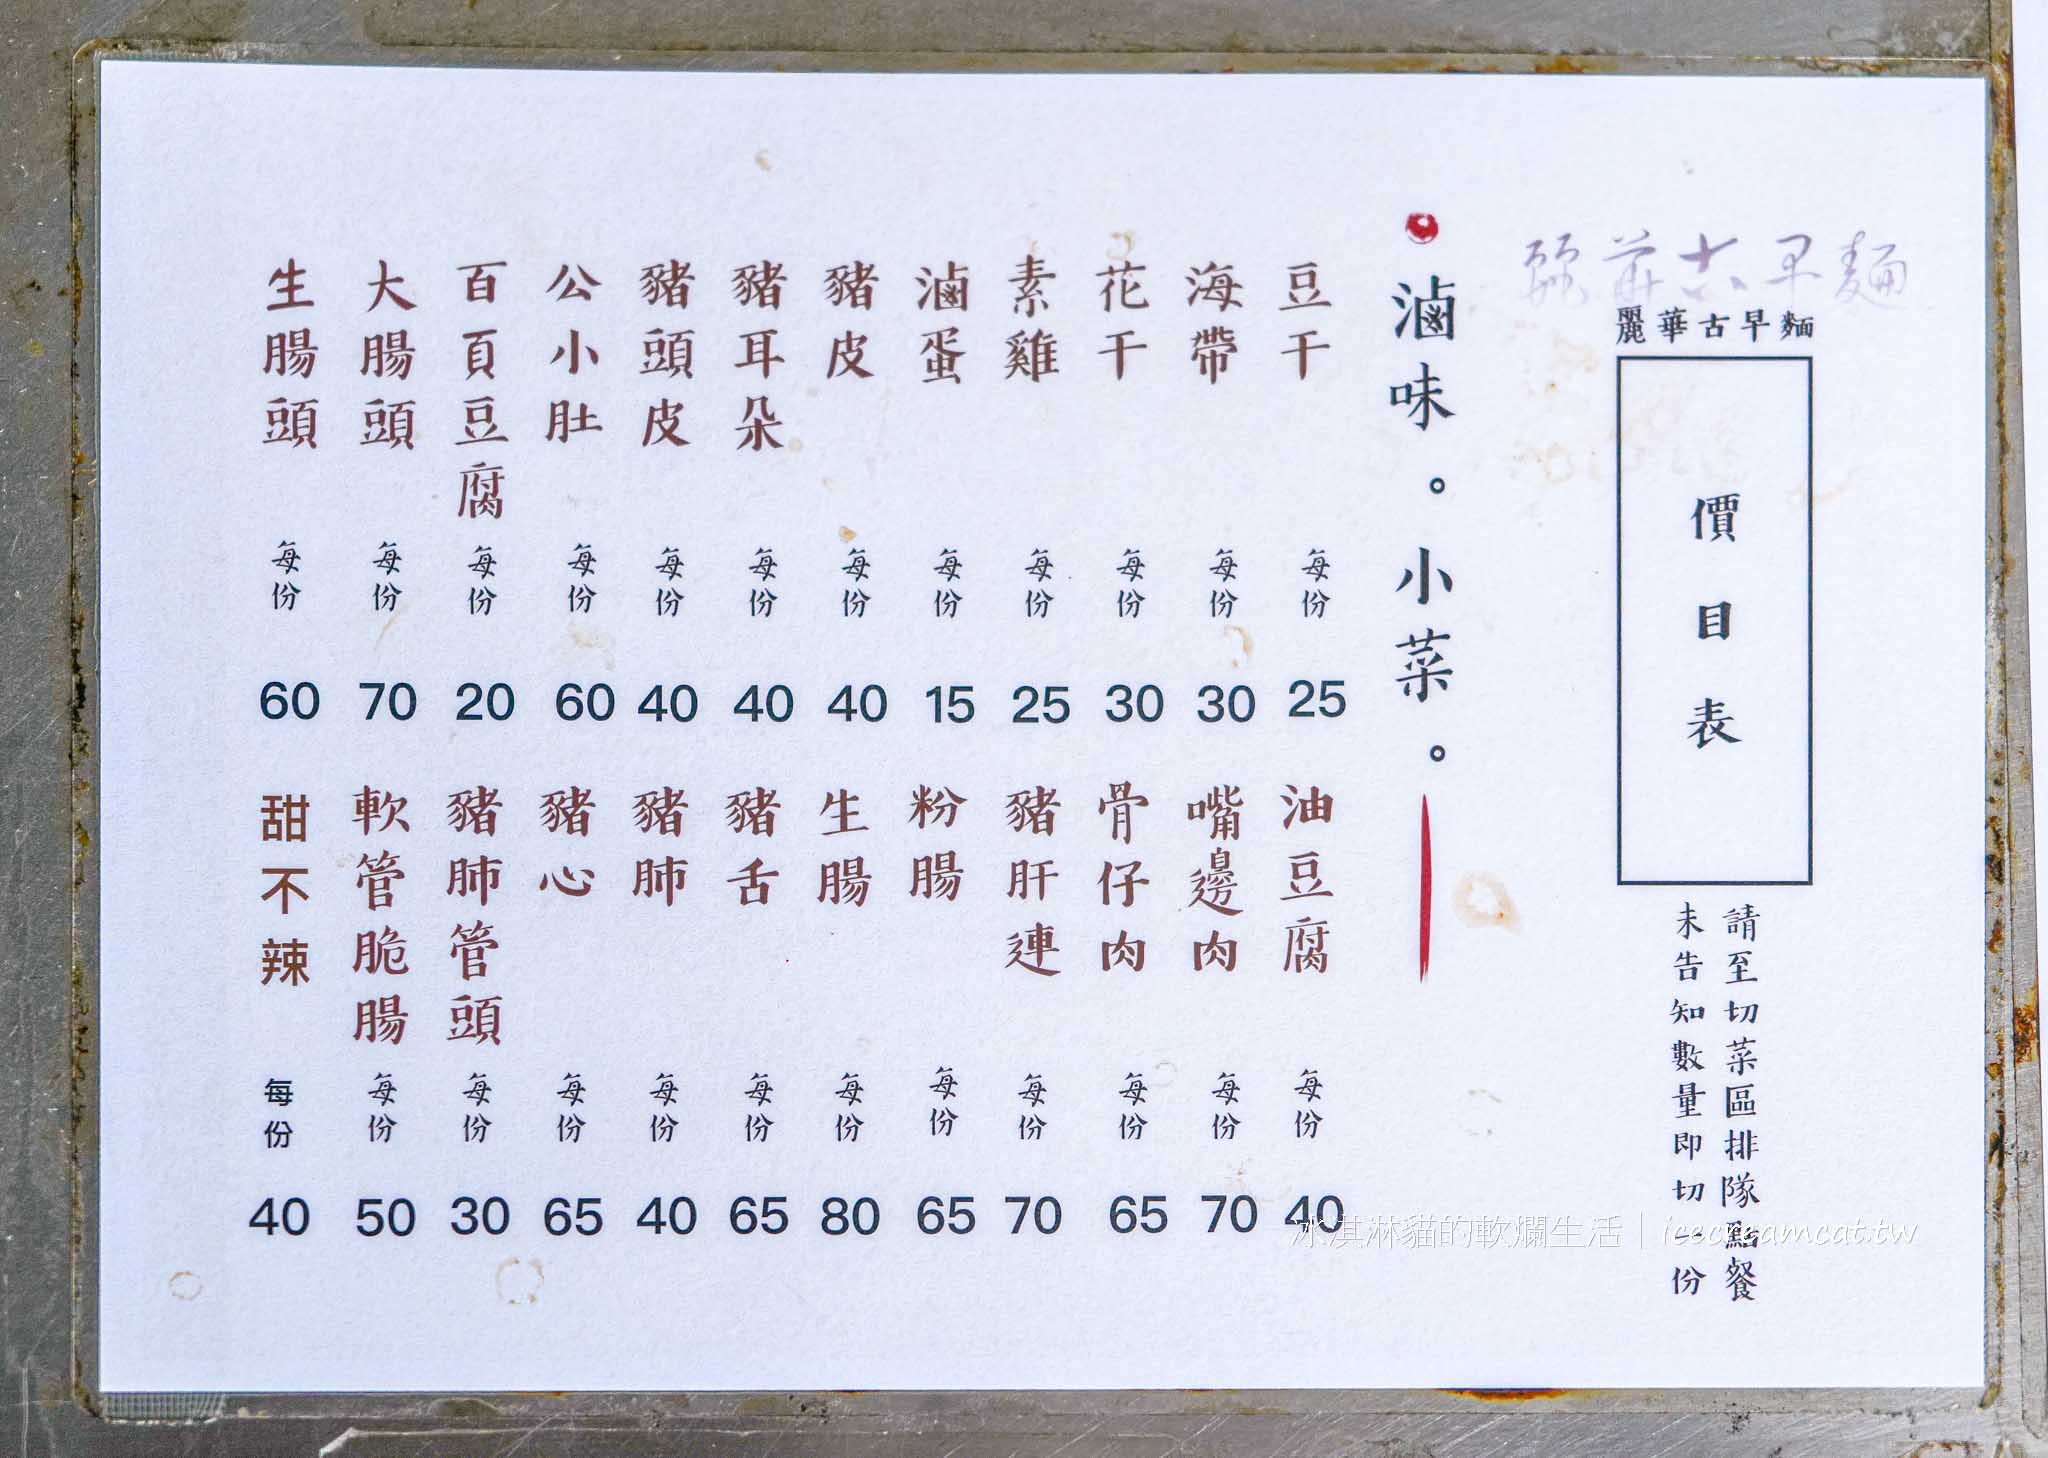 麗華古早麵
麗華古早麵
價目表
請至切菜區排隊點餐
未告知數量即切一份
滷味。小菜。
豆干 每份 25
海帶 每份 30
花干 每份 30
素雞 每份 25
滷蛋 每份 15
豬皮 每份 40
豬耳朵 每份 40
豬頭皮 每份 40
公小肚 每份 60
百頁豆腐 每份 20
大腸頭 每份 70
生腸頭 每份 60
油豆腐 每份 40
嘴邊肉 每份 70
骨仔肉 每份 65
豬肝連 每份 70
粉腸 每份 65
生腸 每份 80
豬舌 每份 65
豬肺 每份 40
豬心 每份 65
豬肺管頭 每份 30
軟管脆腸 每份 50
甜不辣 每份 40
冰淇淋貓的軟爛生活｜icecreamcat.tw